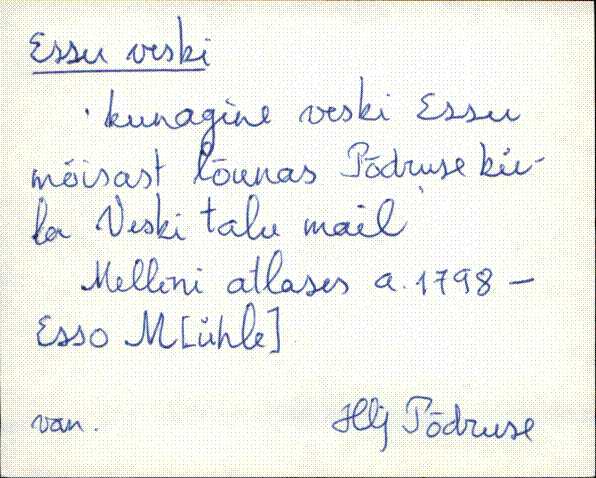 Essu veski
kunagine veski Essu
mõisast lõunas Põdruse kü-
la Veski talu mail
Mellini atlases a. 1798 –
Esso M[ühle]
van. Hlj Põdruse